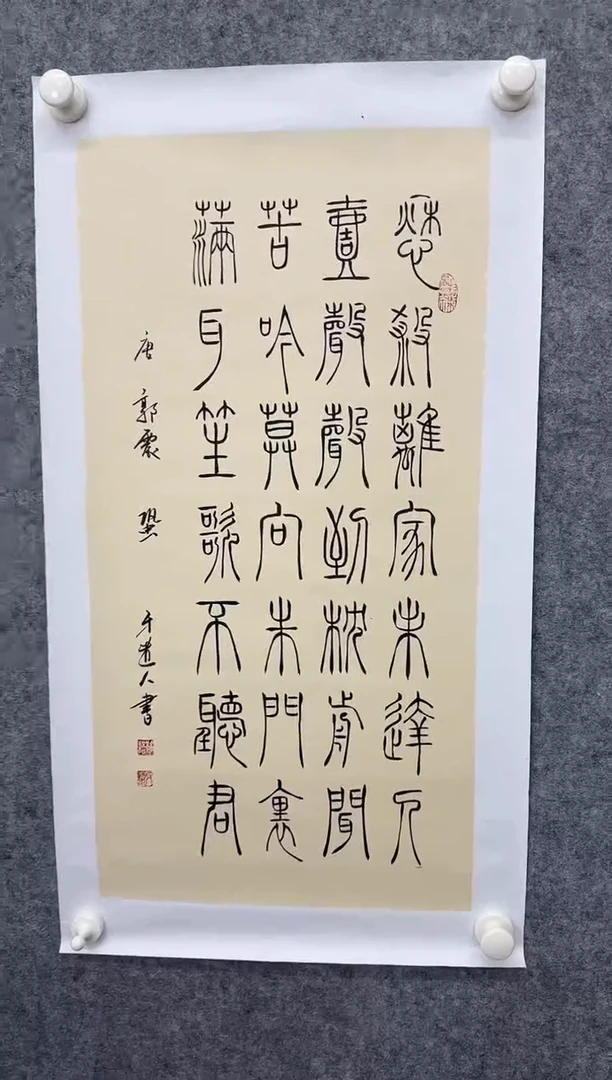 愁殺離家未達人
壹聲聲到枕前聞
苦吟莫向朱門裏
滿耳笙歌不聽君
唐 郭震 蛩 道人書